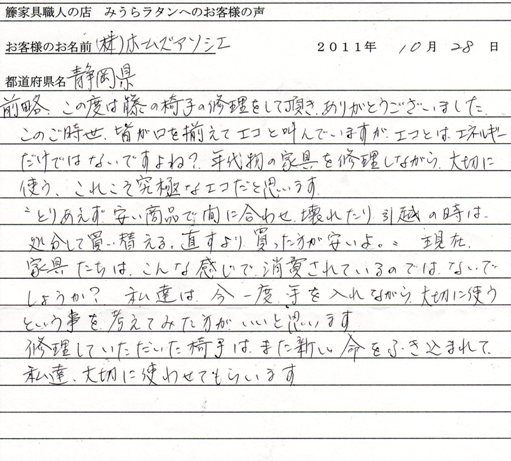 籐家具職人の店　みうらラタンへのお客様の声
お客様のお名前 (株)ホームズアソシエ　2011年 10月 28日
都道府県名 静岡県
前略、この度は籐の椅子の修理をして頂き、ありがとうございました。
このご時世、皆が口を揃えてエコと叫んでいますが、エコとは、エネルギー
だけではないですよね？ 年代物の家具を修理しながら、大切に
使う、これこそ究極なエコだと思います。
"とりあえず安い商品で間に合わせ、壊れたり、引越の時は、
処分して買い替える。直すより、買った方が安いよ。" 現在、
家具たちは、こんな感じで、消費されているのでは、ないで
しょうか？　私達は、今一度、手を入れながら、大切に使う
という事を考えてみた方がいいと思います
修理していただいた椅子は、また新しい命をふき込まれて、
私達、大切に使わせてもらいます